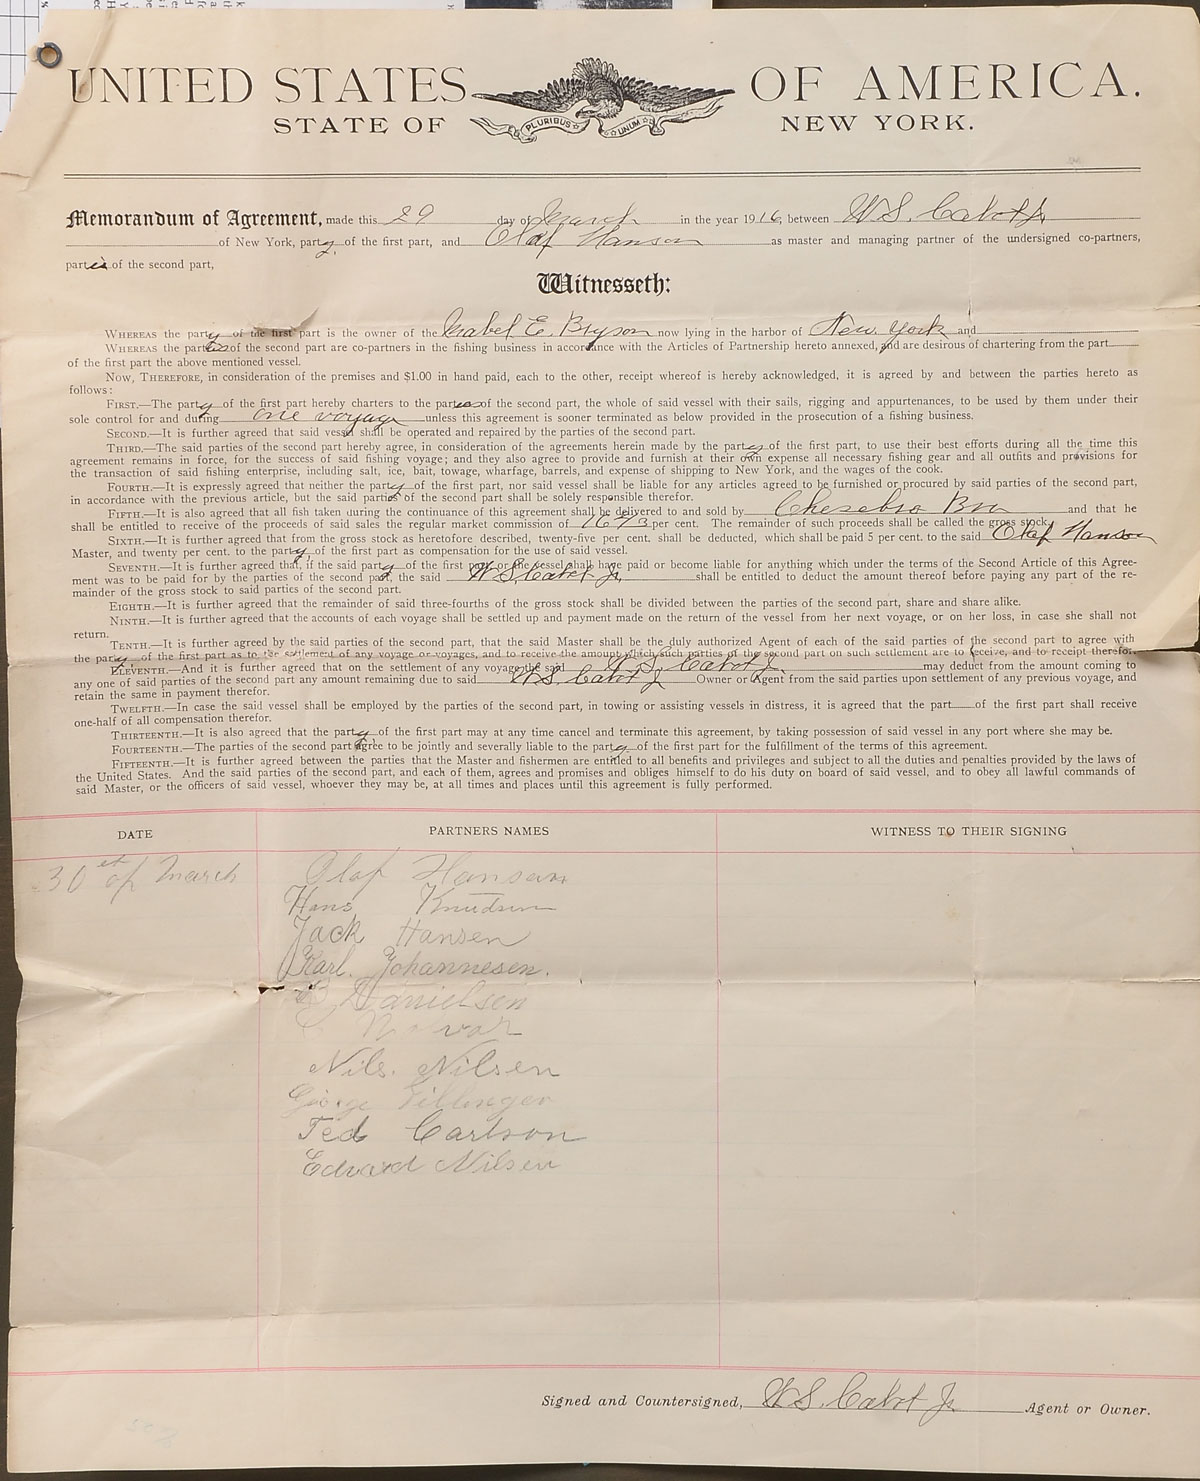 UNITED STATES OF AMERICA.
E PLURIBUS UNUM
STATE OF NEW YORK.
Memorandum of Agreement, made this 29 day of March in the year 1916, between W.S. Cabot Jr
of New York, party of the first part, and Olaf Hanson as master and managing partner of the undersigned co-partners,
parties of the second part,
Witnesseth:
WHEREAS the party of the first part is the owner of the Mabel E. Bryson now lying in the harbor of New York and
WHEREAS the parties of the second part are co-partners in the fishing business in accordance with the Articles of Partnership hereto annexed, and are desirous of chartering from the part
of the first part the above mentioned vessel.
NOW, THEREFORE, in consideration of the premises and $1.00 in hand paid, each to the other, receipt whereof is hereby acknowledged, it is agreed by and between the parties hereto as
follows:
FIRST.—The party of the first part hereby charters to the parties of the second part, the whole of said vessel with their sails, rigging and appurtenances, to be used by them under their
sole control for and during one voyage unless this agreement is sooner terminated as below provided in the prosecution of a fishing business.
SECOND.—It is further agreed that said vessel shall be operated and repaired by the parties of the second part.
THIRD.—The said parties of the second part hereby agree, in consideration of the agreements herein made by the party of the first part, to use their best efforts during all the time this
agreement remains in force, for the success of said fishing voyage; and they also agree to provide and furnish at their own expense all necessary fishing gear and all outfits and provisions for
the transaction of said fishing enterprise, including salt, ice, bait, towage, wharfage, barrels, and expense of shipping to New York, and the wages of the cook.
FOURTH.—It is expressly agreed that neither the party of the first part, nor said vessel shall be liable for any articles agreed to be furnished or procured by said parties of the second part,
in accordance with the previous article, but the said parties of the second part shall be solely responsible therefor.
FIFTH.—It is also agreed that all fish taken during the continuance of this agreement shall be delivered to and sold by Chesebro Bro and that he
shall be entitled to receive of the proceeds of said sales the regular market commission of per cent. The remainder of such proceeds shall be called the gross stock.
SIXTH.—It is further agreed that from the gross stock as heretofore described, twenty-five per cent. shall be deducted, which shall be paid 5 per cent. to the said Olaf Hanson
Master, and twenty per cent. to the party of the first part as compensation for the use of said vessel.
SEVENTH.—It is further agreed that, if the said party of the first part or the vessel shall have paid or become liable for anything which under the terms of the Second Article of this Agree-
ment was to be paid for by the parties of the second part, the said W S Cabot Jr. shall be entitled to deduct the amount thereof before paying any part of the re-
mainder of the gross stock to said parties of the second part.
EIGHTH.—It is further agreed that the remainder of said three-fourths of the gross stock shall be divided between the parties of the second part, share and share alike.
NINTH.—It is further agreed that the accounts of each voyage shall be settled up and payment made on the return of the vessel from her next voyage, or on her loss, in case she shall not
return.
TENTH.—It is further agreed by the said parties of the second part, that the said Master shall be the duly authorized Agent of each of the said parties of the second part to agree with
the party of the first part as to the settlement of any voyage or voyages, and to receive the amount which such parties of the second part on such settlement are to receive, and to receipt therefor.
ELEVENTH.—And it is further agreed that on the settlement of any voyage the said W.S. Cabot Jr may deduct from the amount coming to
any one of said parties of the second part any amount remaining due to said W.S. Cabot Jr Owner or Agent from the said parties upon settlement of any previous voyage, and
retain the same in payment therefor.
TWELFTH.—In case the said vessel shall be employed by the parties of the second part, in towing or assisting vessels in distress, it is agreed that the part of the first part shall receive
one-half of all compensation therefor.
THIRTEENTH.—It is also agreed that the party of the first part may at any time cancel and terminate this agreement, by taking possession of said vessel in any port where she may be.
FOURTEENTH.—The parties of the second part agree to be jointly and severally liable to the party of the first part for the fulfillment of the terms of this agreement.
FIFTEENTH.—It is further agreed between the parties that the Master and fishermen are entitled to all benefits and privileges and subject to all the duties and penalties provided by the laws of
the United States. And the said parties of the second part, and each of them, agrees and promises and obliges himself to do his duty on board of said vessel, and to obey all lawful commands of
said Master, or the officers of said vessel, whoever they may be, at all times and places until this agreement is fully performed.
DATE PARTNERS NAMES WITNESS TO THEIR SIGNING
30 et of March Olaf Hanson
Hans Knudsen
Jack Hansen
Karl. Johannesen.
Danielsen
Nils. Nilsen
George
Ted Carlson
Edvard Nilsen
Signed and Countersigned, W.S. Cabot Jr Agent or Owner.